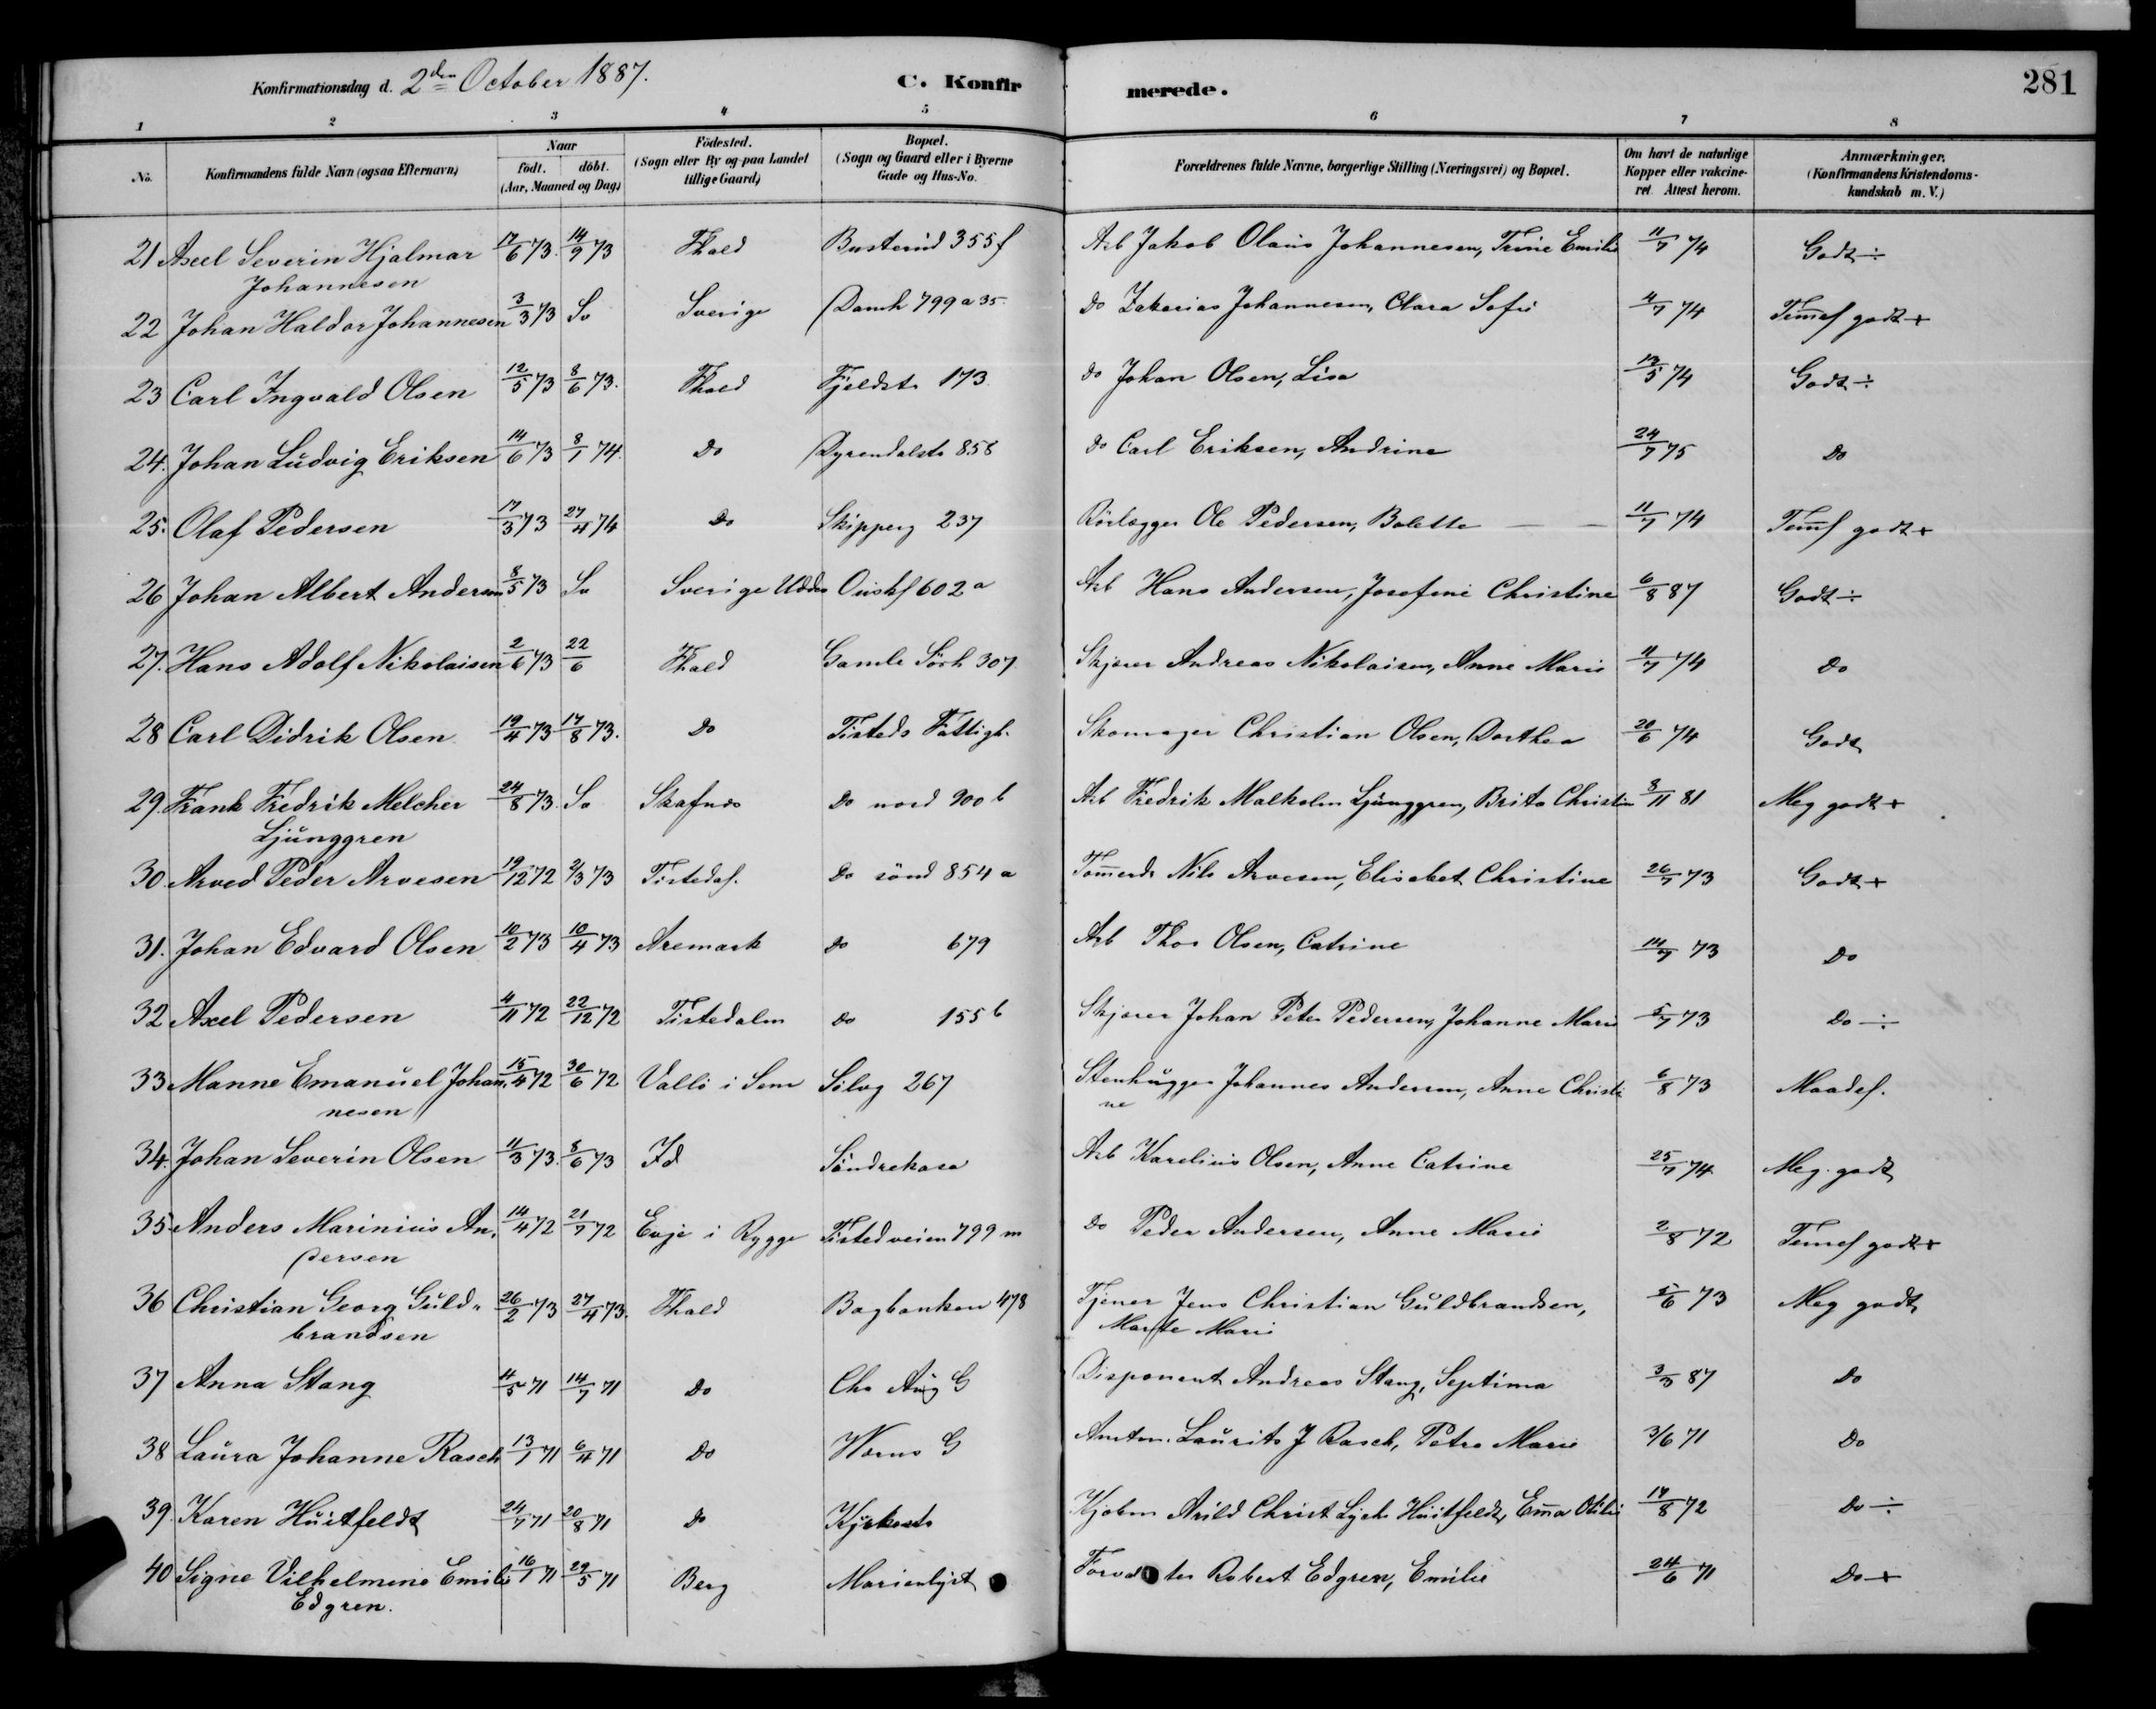 Konfirmationsdag d. 2den October 1887. C. Konfirmerede. 281
1 2 3 4 5 6 7 8
No. Konfirmandens fulde Navn (ogsaa Efternavn) Naar födt. döbt. (Aar, Maaned og Dag) Födested. (Sogn eller By og paa Landet tillige Gaard) Bopæl. (Sogn og Gaard eller i Byerne Gade og Hus-No. Forældrenes fulde Navne, borgerlige Stilling (Næringsvei) og Bopæl. Om havt de naturlige Kopper eller vakcineret Attest herom. Anmærkninger. (Konfirmandens Kristendomskundskab m. V.)
21 Axel Severin Hjalmar 17/6 73. 14/9 73 Fhald Busterud 355 f Arb Jakob Olaus Johannesen, Trine Emilie 11/7 74 Godt ÷
Johannesen
22 Johan Haldor Johannesen 3/3 73 Sv Sverige Damh 799 a 35 Do Zakarias Johannesen, Clara Sofie 4/7 74 Temmel godt +
23 Carl Ingvald Olsen 12/5 73 8/6 73. Fhald Fjeldst 173 Do Johan Olsen, Lisa 13/5 74 Godt ÷
24. Johan Ludvig Eriksen 14/6 73 8/1 74. Do Dyrendalst 858 Do Carl Eriksen, Andrine 24/7 75 Do
25. Olaf Pedersen 17/3 73 27/4 74 Do Skipperg 237 Rörlægger Ole Pedersen, Bolette 11/7 74 Temmel godt +
26 Johan Albert Andersen 8/5 73 Sv Sverige 602 a Arb Hans Andersen, Josefine Christine 6/8 87 Godt ÷
27. Hans Adolf Nikolaisen 2/6 73 22/6 Fhald Gamle 307 Skjærer Andreas Nikolaisen, Anne Marie 11/7 74 Do
28 Carl Didrik Olsen 19/4 73 17/8 73. Do Tisteds Fattigh. Skomager Christian Olsen, Dorthea 20/6 74 Godt
29. Frank Fredrik Melcher 24/8 73. Sv Skafnæs Do nord 900 b Arb Fredrik Malkolm Ljunggren, Brita Christin 3/11 81 Meg godt +
Ljunggren
30. Arved Peder Arvesen 19/12 72 2/3 73 Tistedal. Do sönd 854 a Tömmerh Nils Arvesen, Elisabet Christine 26/7 73 Godt +
31. Johan Edvard Olsen 10/2 73 10/4 73 Aremark Do 679 Arb Thor Olsen, Catrine 14/7 73 Do
32 Axel Pedersen 4/11 72 22/12 72 Tistedalen Do 155 b Skjærer Johan Peter Pedersen, Johanne Marie 5/7 73 Do ÷
33 Manne Emanuel Johan, 15/4 72 30/6 72 Vallö i Sem Sölvg 267 Stenhugger Johannes Andersen, Anne Christi 6/8 73 Maadel.
nesen ne
34. Johan Severin Olsen 11/3 73. 8/6 73 Id Söndrekasa Arb Karelius Olsen, Anne Catrine 25/7 74 Meg. godt
35 Anders Marinius An, 14/4 72 21/7 72 Evje i Rygge Tistedveien 799 m Do Peder Andersen, Anne Marie 2/8 72 Temmel godt +
dersen
36 Christian Georg Guld" 26/2 73 27/4 73. Fhald Bagbanken 478 Tjener Jens Christian Guldbrandsen, 5/6 73 Meg godt
brandsen Marte Marie
37 Anna Stang 11/5 71 14/7 71 Do Chr Aug G Disponent Andreas Stang, Septima 3/3 87 Do
38 Laura Johanne Rasch 13/1 71 6/4 71 Do Werns G Amtm. Laurits J Rasch, Petra Marie 3/6 71 Do
39. Karen Huitfeldt 24/7 71 20/8 71 Do Kjøbm Arild Christ Huitfeldt, Emma Otilie 17/8 72 Do ÷
40 Signe Vilhelmine Emilie 16/1 71 29/5 71 Berg Marienlyst Robert Edgren, Emilie 24/6 71 Do +
Edgren.